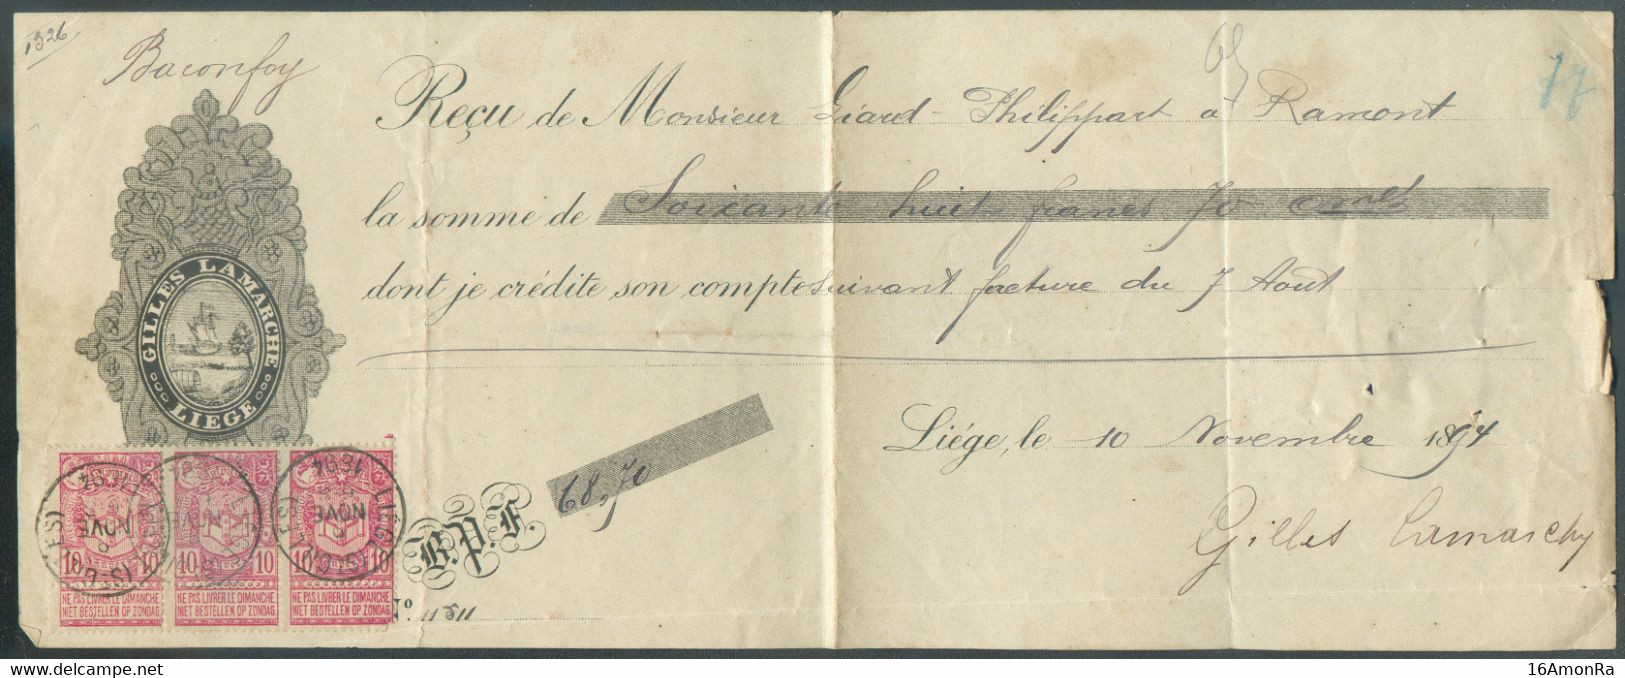 1326
Baconfoy
65
77
Reçu de Monsieur Liard-Philippart à Ramont
la somme de Soixante huit francs 70 cmes
dont je crédite son compte suivant facture du 7 Août
GILLES LAMARCHE
LIEGE
Liége, le 10 Novembre 1894
B.P.F. 68,70
Gilles Lamarche
LIÉGE (GUILLES)
NOVE
1894
10 10 10 10 10 10
NE PAS LIVRER LE DIMANCHE NE PAS LIVRER LE DIMANCHE NE PAS LIVRER LE DIMANCHE
NIET BESTELLEN OP ZONDAG NIET BESTELLEN OP ZONDAG NIET BESTELLEN OP ZONDAG
No. 11511
delcampe.net
16AmonRa